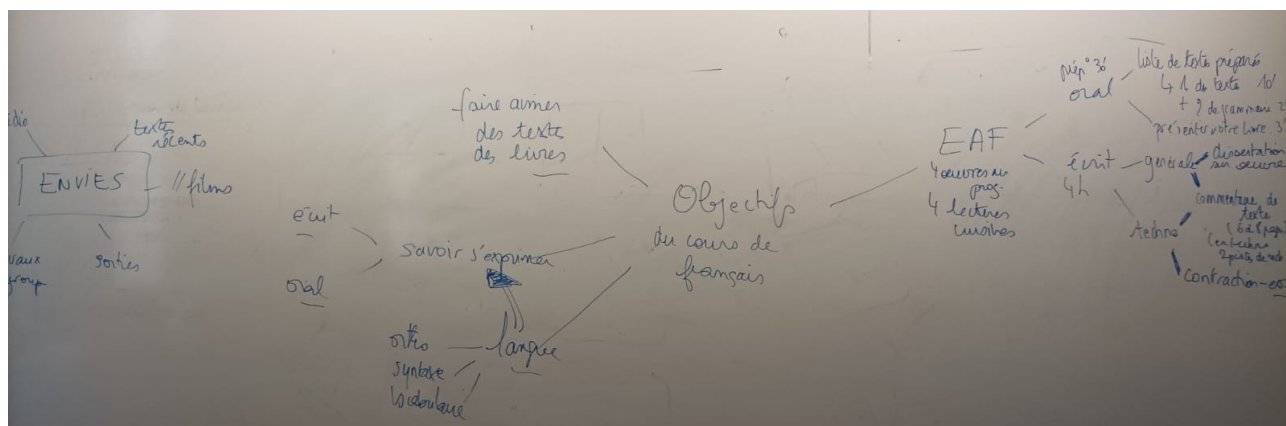 textes
récents
ENVIES
// films
sorties
group
faire aimer
des textes
des livres
écrit
oral
savoir s'exprimer
ortho
syntaxe
vocabulaire
langue
Objectifs
du cours de
français
EAF
4 oeuvres au
prog.
4 lectures
cursives
prép° 30'
oral
liste de textes préparés
↳ 1 de texte 10'
+ ? de grammaire 2
présenter votre livre. 3'
écrit
4h
générale
dissertation
sur oeuvre
commentaire de
texte
techno
contraction-es